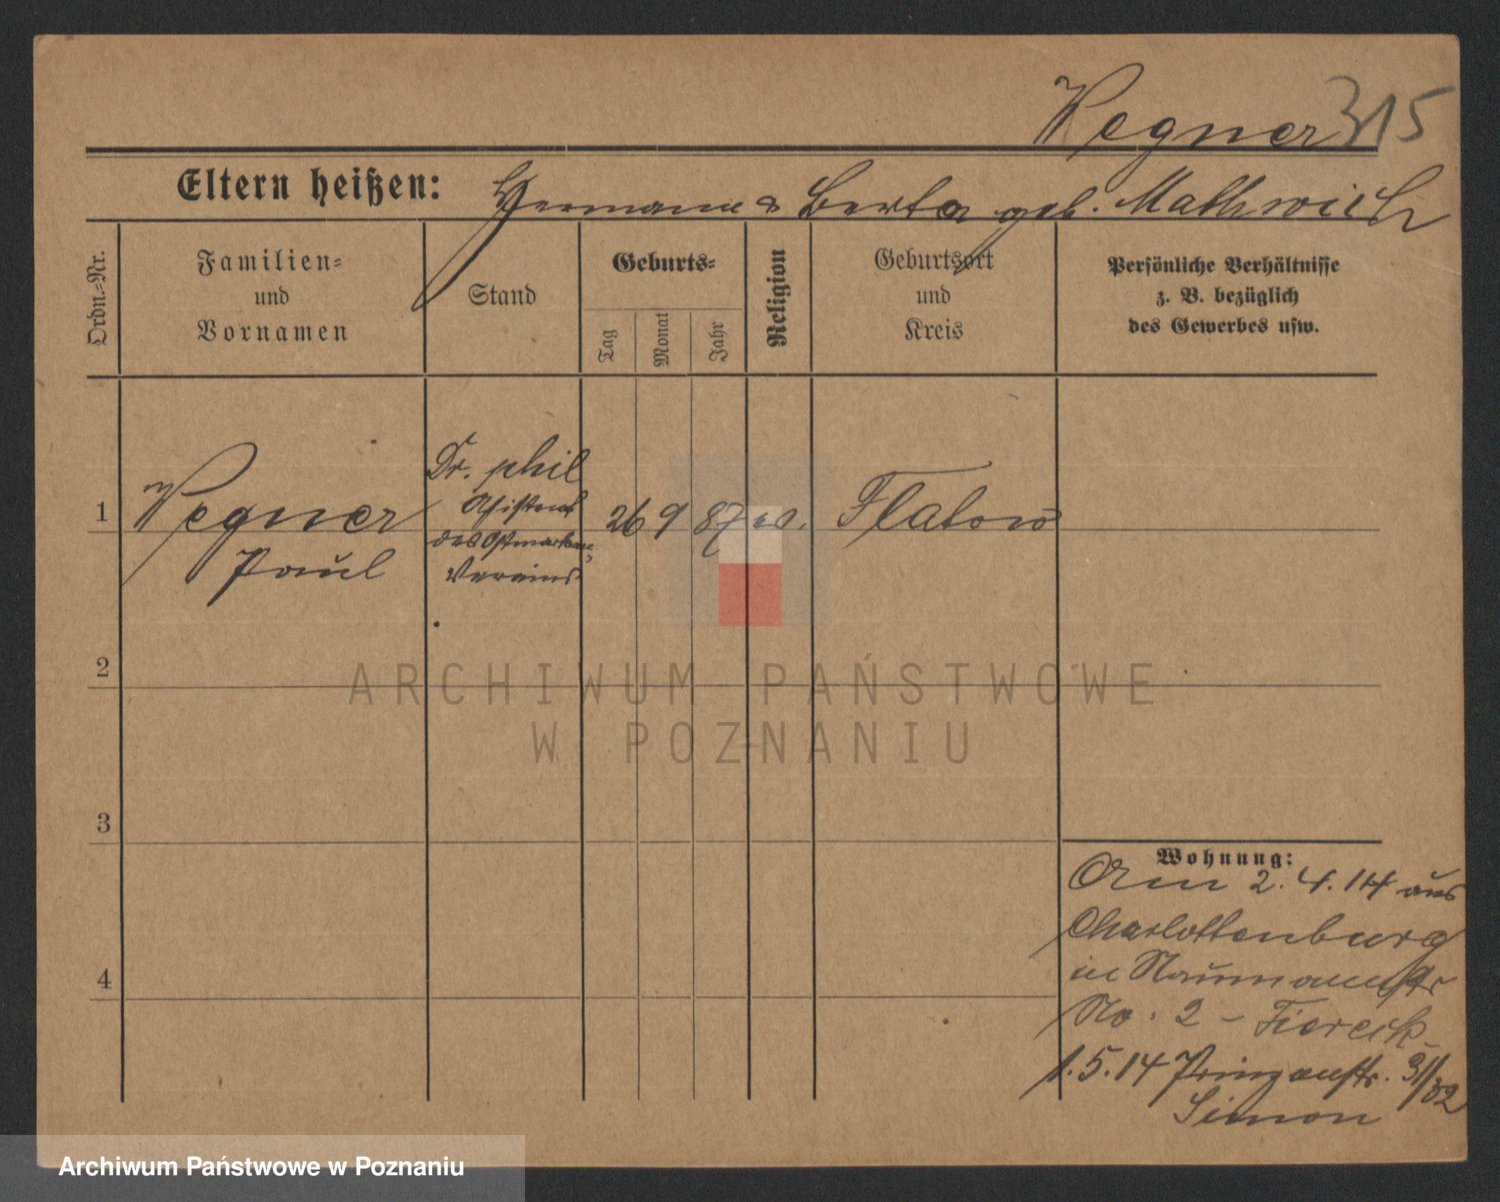 Wegner 315
Eltern heißen: Hermann & Berta geb. Mathwich
Ordn.-Nr.
Familien-
und
Vornamen
Stand
Geburts-
Tag
Monat
Jahr
Religion
Geburtsort
und
Kreis
Persönliche Verhältnisse
z. B. bezüglich
des Gewerbes usw.
1
Wegner
Paul
Dr. phil
Assistent
des Ostmarken
Vereins
26 9 87 ev. Flatow
2
3
4
Wohnung:
Am 2.4.14 aus
Charlottenburg
in Naumannstr
No. 2 –
1.5.14 Prinzenstr. 31/32
Simon
ARCHIWUM PAŃSTWOWE
W POZNANIU
Archiwum Państwowe w Poznaniu